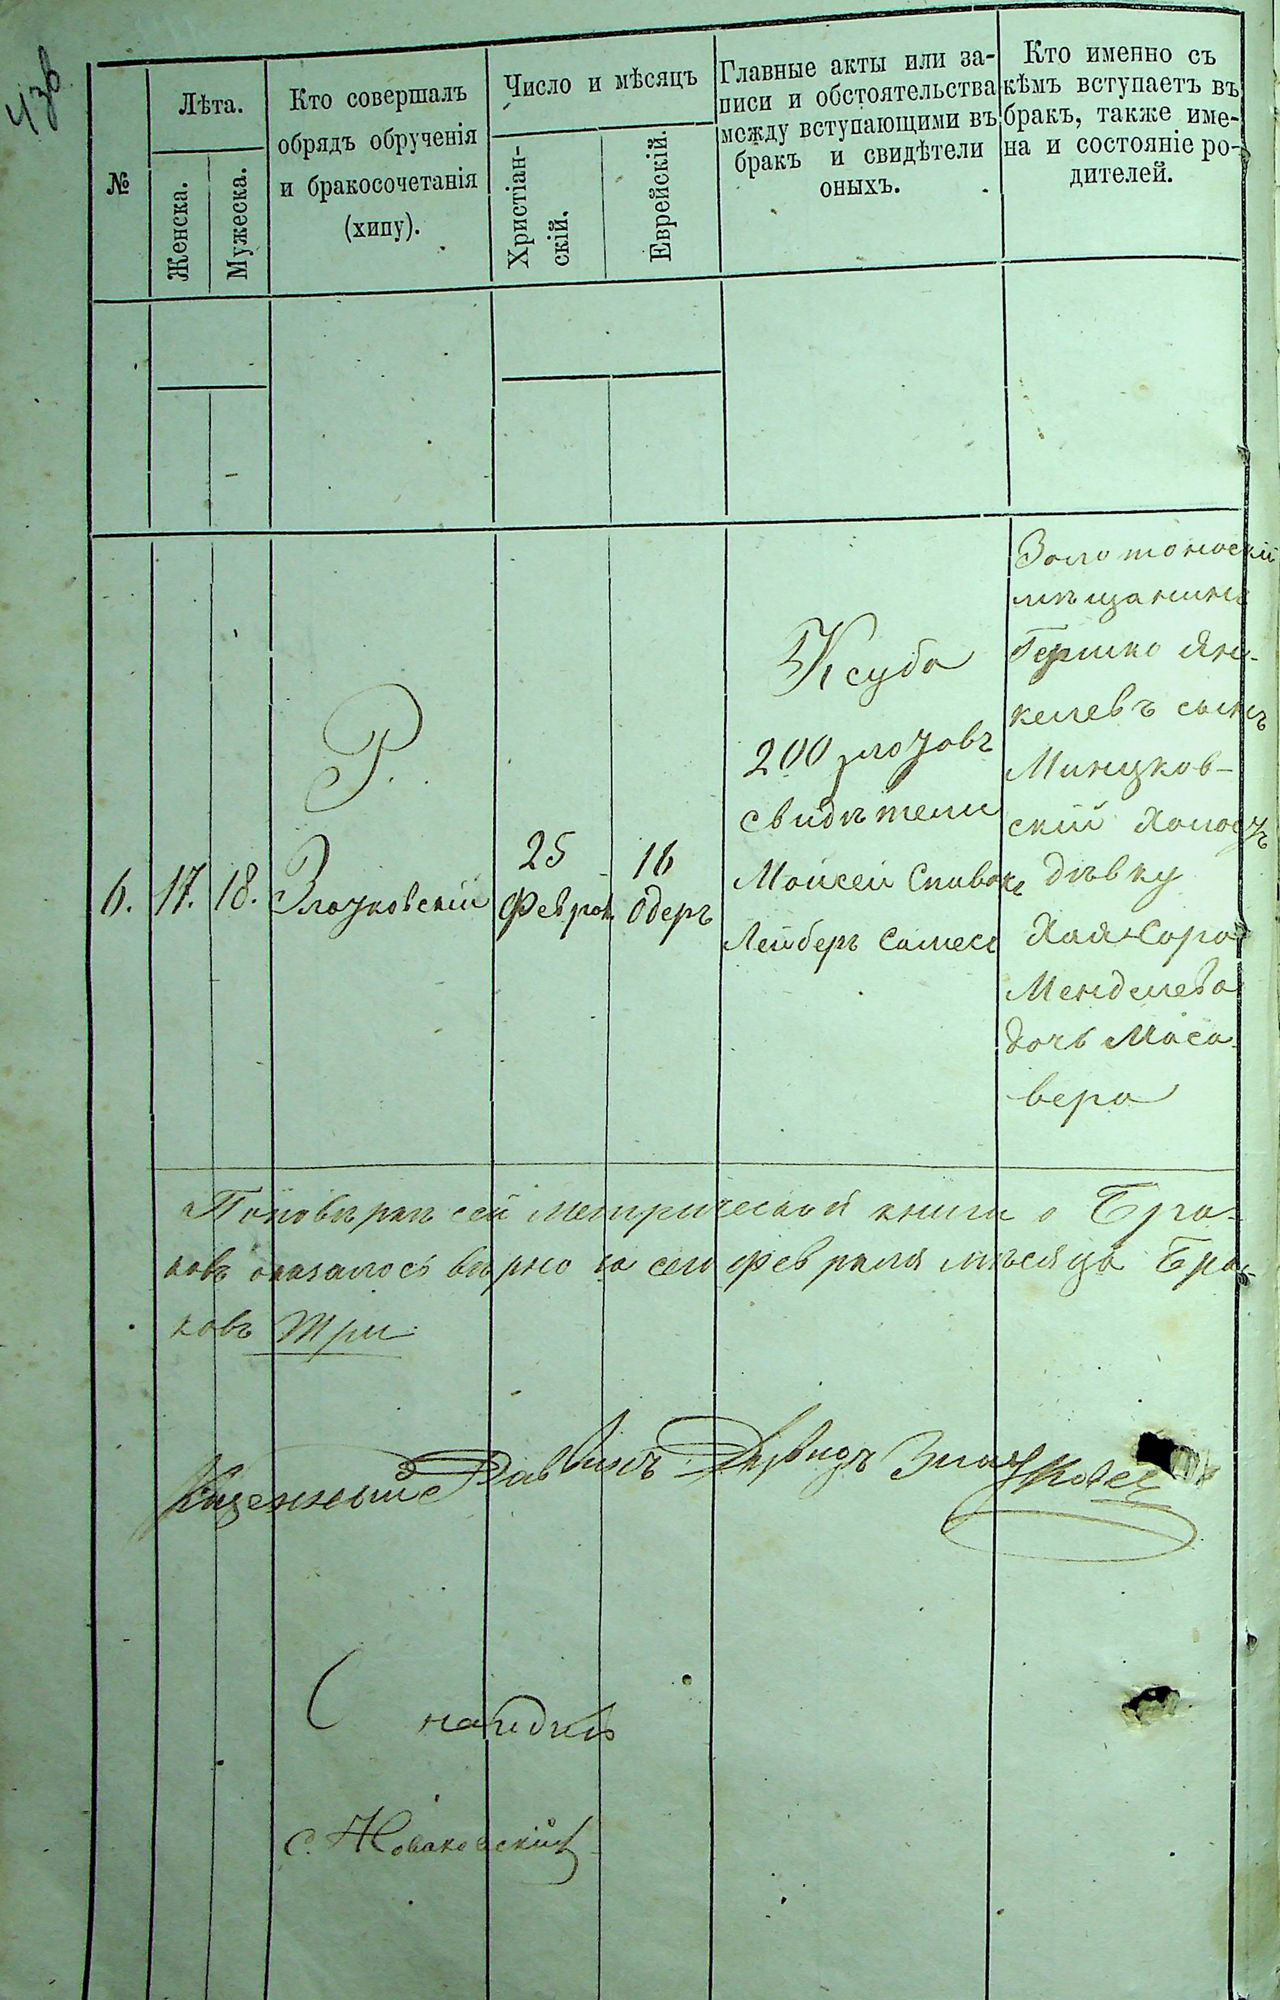 43 об.
№
Лѣта.
Женска.
Мужеска.
Кто совершалъ
обрядъ обрученія
и бракосочетанія
(хипу).
Число и мѣсяцъ
Христіан-
скій.
Еврейскій.
Главные акты или за-
писи и обстоятельства
между вступающими въ
бракъ и свидѣтели
оныхъ.
Кто именно съ
кѣмъ вступаетъ въ
бракъ, также име-
на и состояніе ро-
дителей.
6.
17.
18.
Р.
Злочковскій
25
Феврал
16
Одеръ
Ксуба
200 злотовъ
свидѣтели
Мойсей Спивакъ
Лейберъ
Золотоноскій
мѣщанинъ
Гершко Ян-
келевъ сынъ
Минцков-
скій Холост
дѣвку
Хая Сора
Менделева
дочь Маса-
вера
По повѣркѣ сей метрической книги о Бра-
ковъ оказалось вѣрно за сего февраля мѣсяца Бра-
ковъ Три
Казенный Раввинъ Давидъ
С. Новаковскій